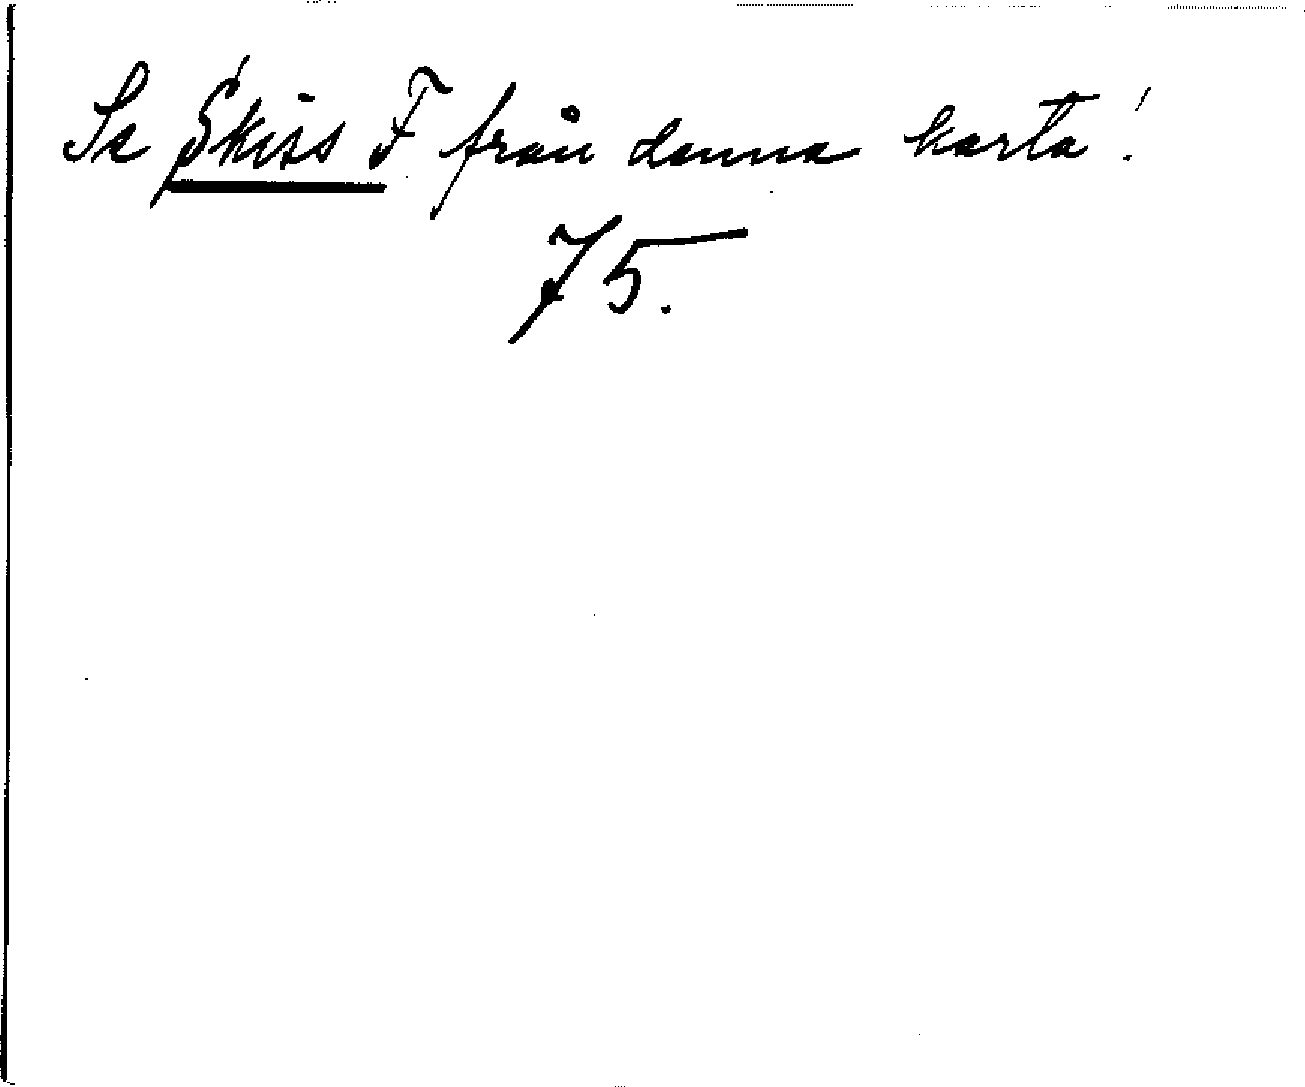 Se Skiss F från denna karta!
75.